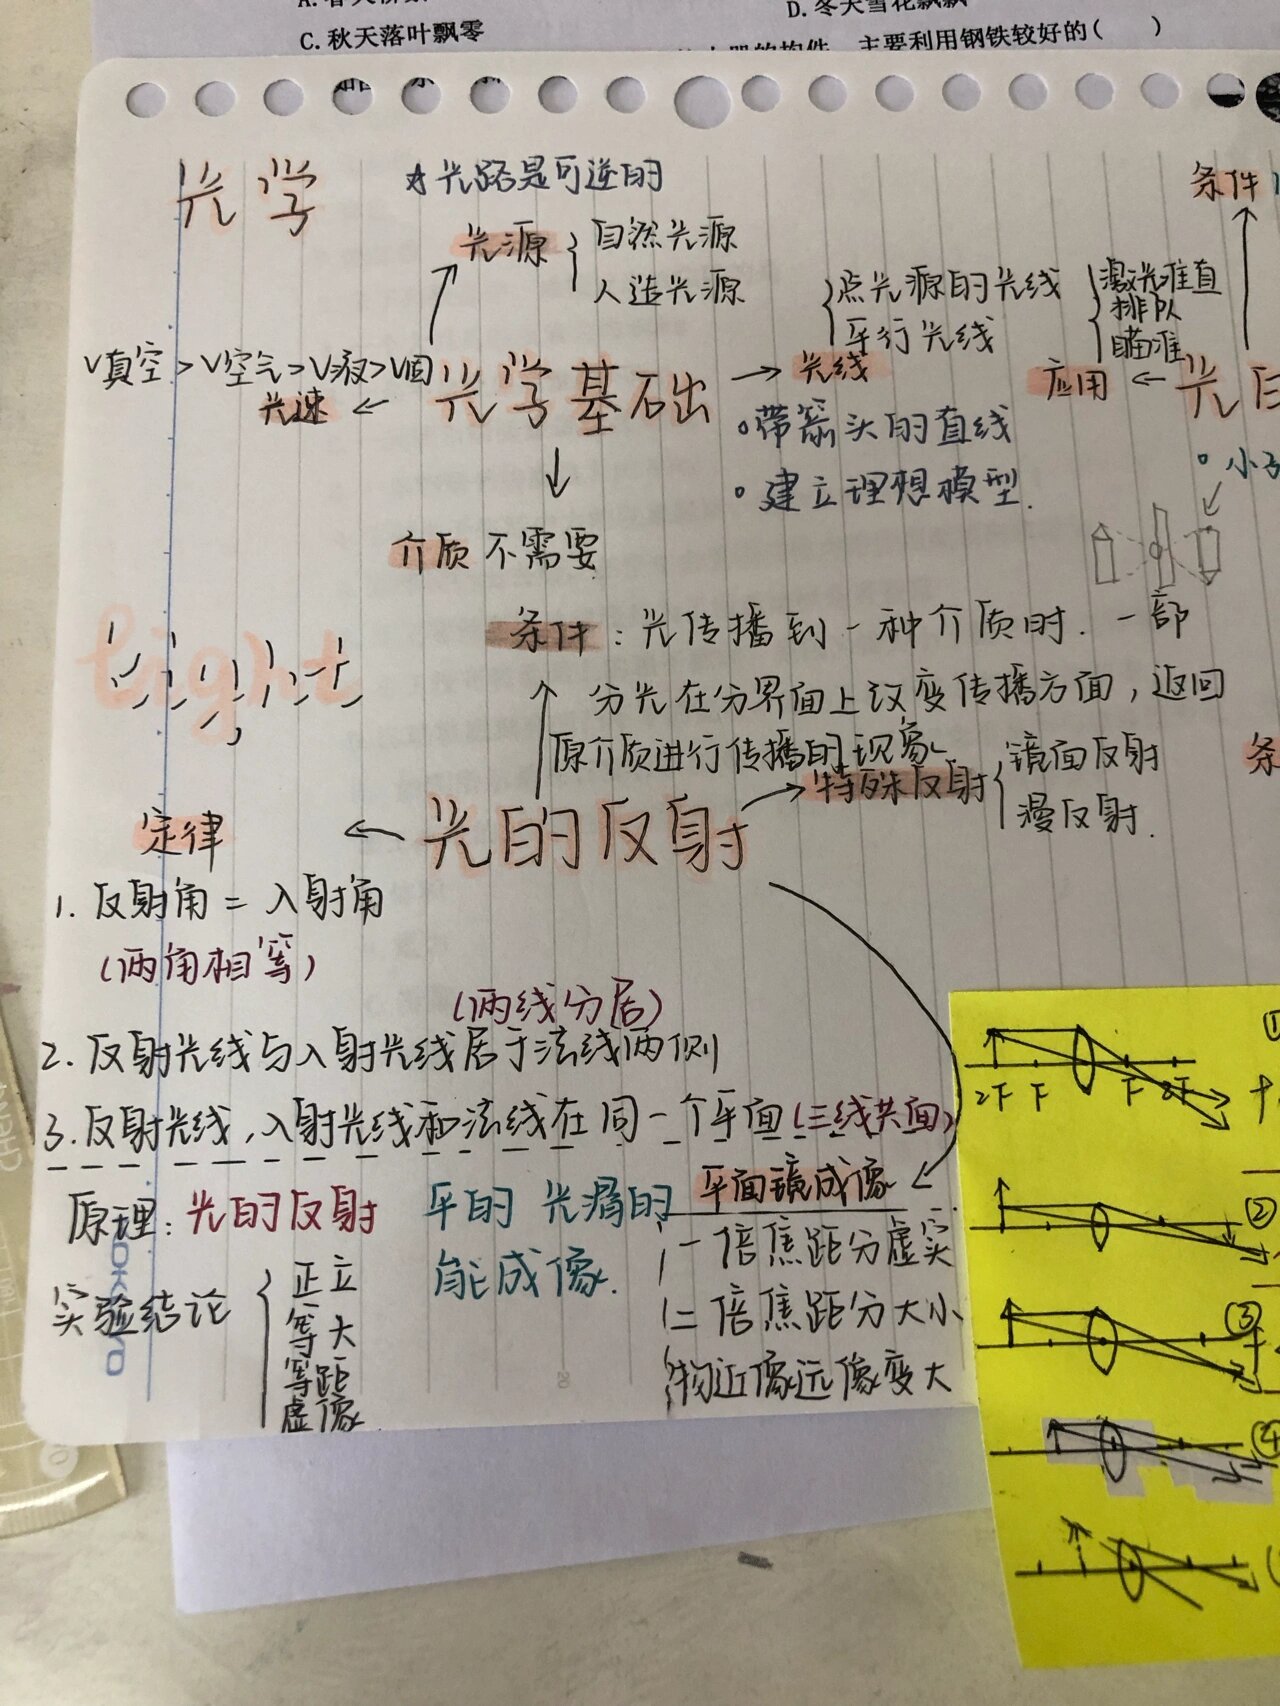 C.秋天落叶飘零
D.冬天雪花飘飘
主要利用钢铁较好的(　　)
光学
☆光路是可逆的
条件
光源
自然光源
人造光源
点光源的光线
平行光线
激光准直
排队
瞄准
V真空>V空气>V液>V固
光速
光学基础
光线
应用
光
·带箭头的直线
·建立理想模型.
介质 不需要
light
条件：光传播到一种介质时.一部
分光在分界面上改变传播方面，返回
原介质进行传播的现象
特殊反射
镜面反射
漫反射.
条
定律
光的反射
1.反射角=入射角
(两角相等)
(两线分居)
2.反射光线与入射光线居于法线两侧
3.反射光线,入射光线和法线在同一个平面(三线共面)
原理：光的反射
平的 光滑的
能成像.
平面镜成像
一倍焦距分虚实
二倍焦距分大小
物近像远像变大
实验结论
正立
等大
等距
虚像
2F F F 2F
①
②
③
④